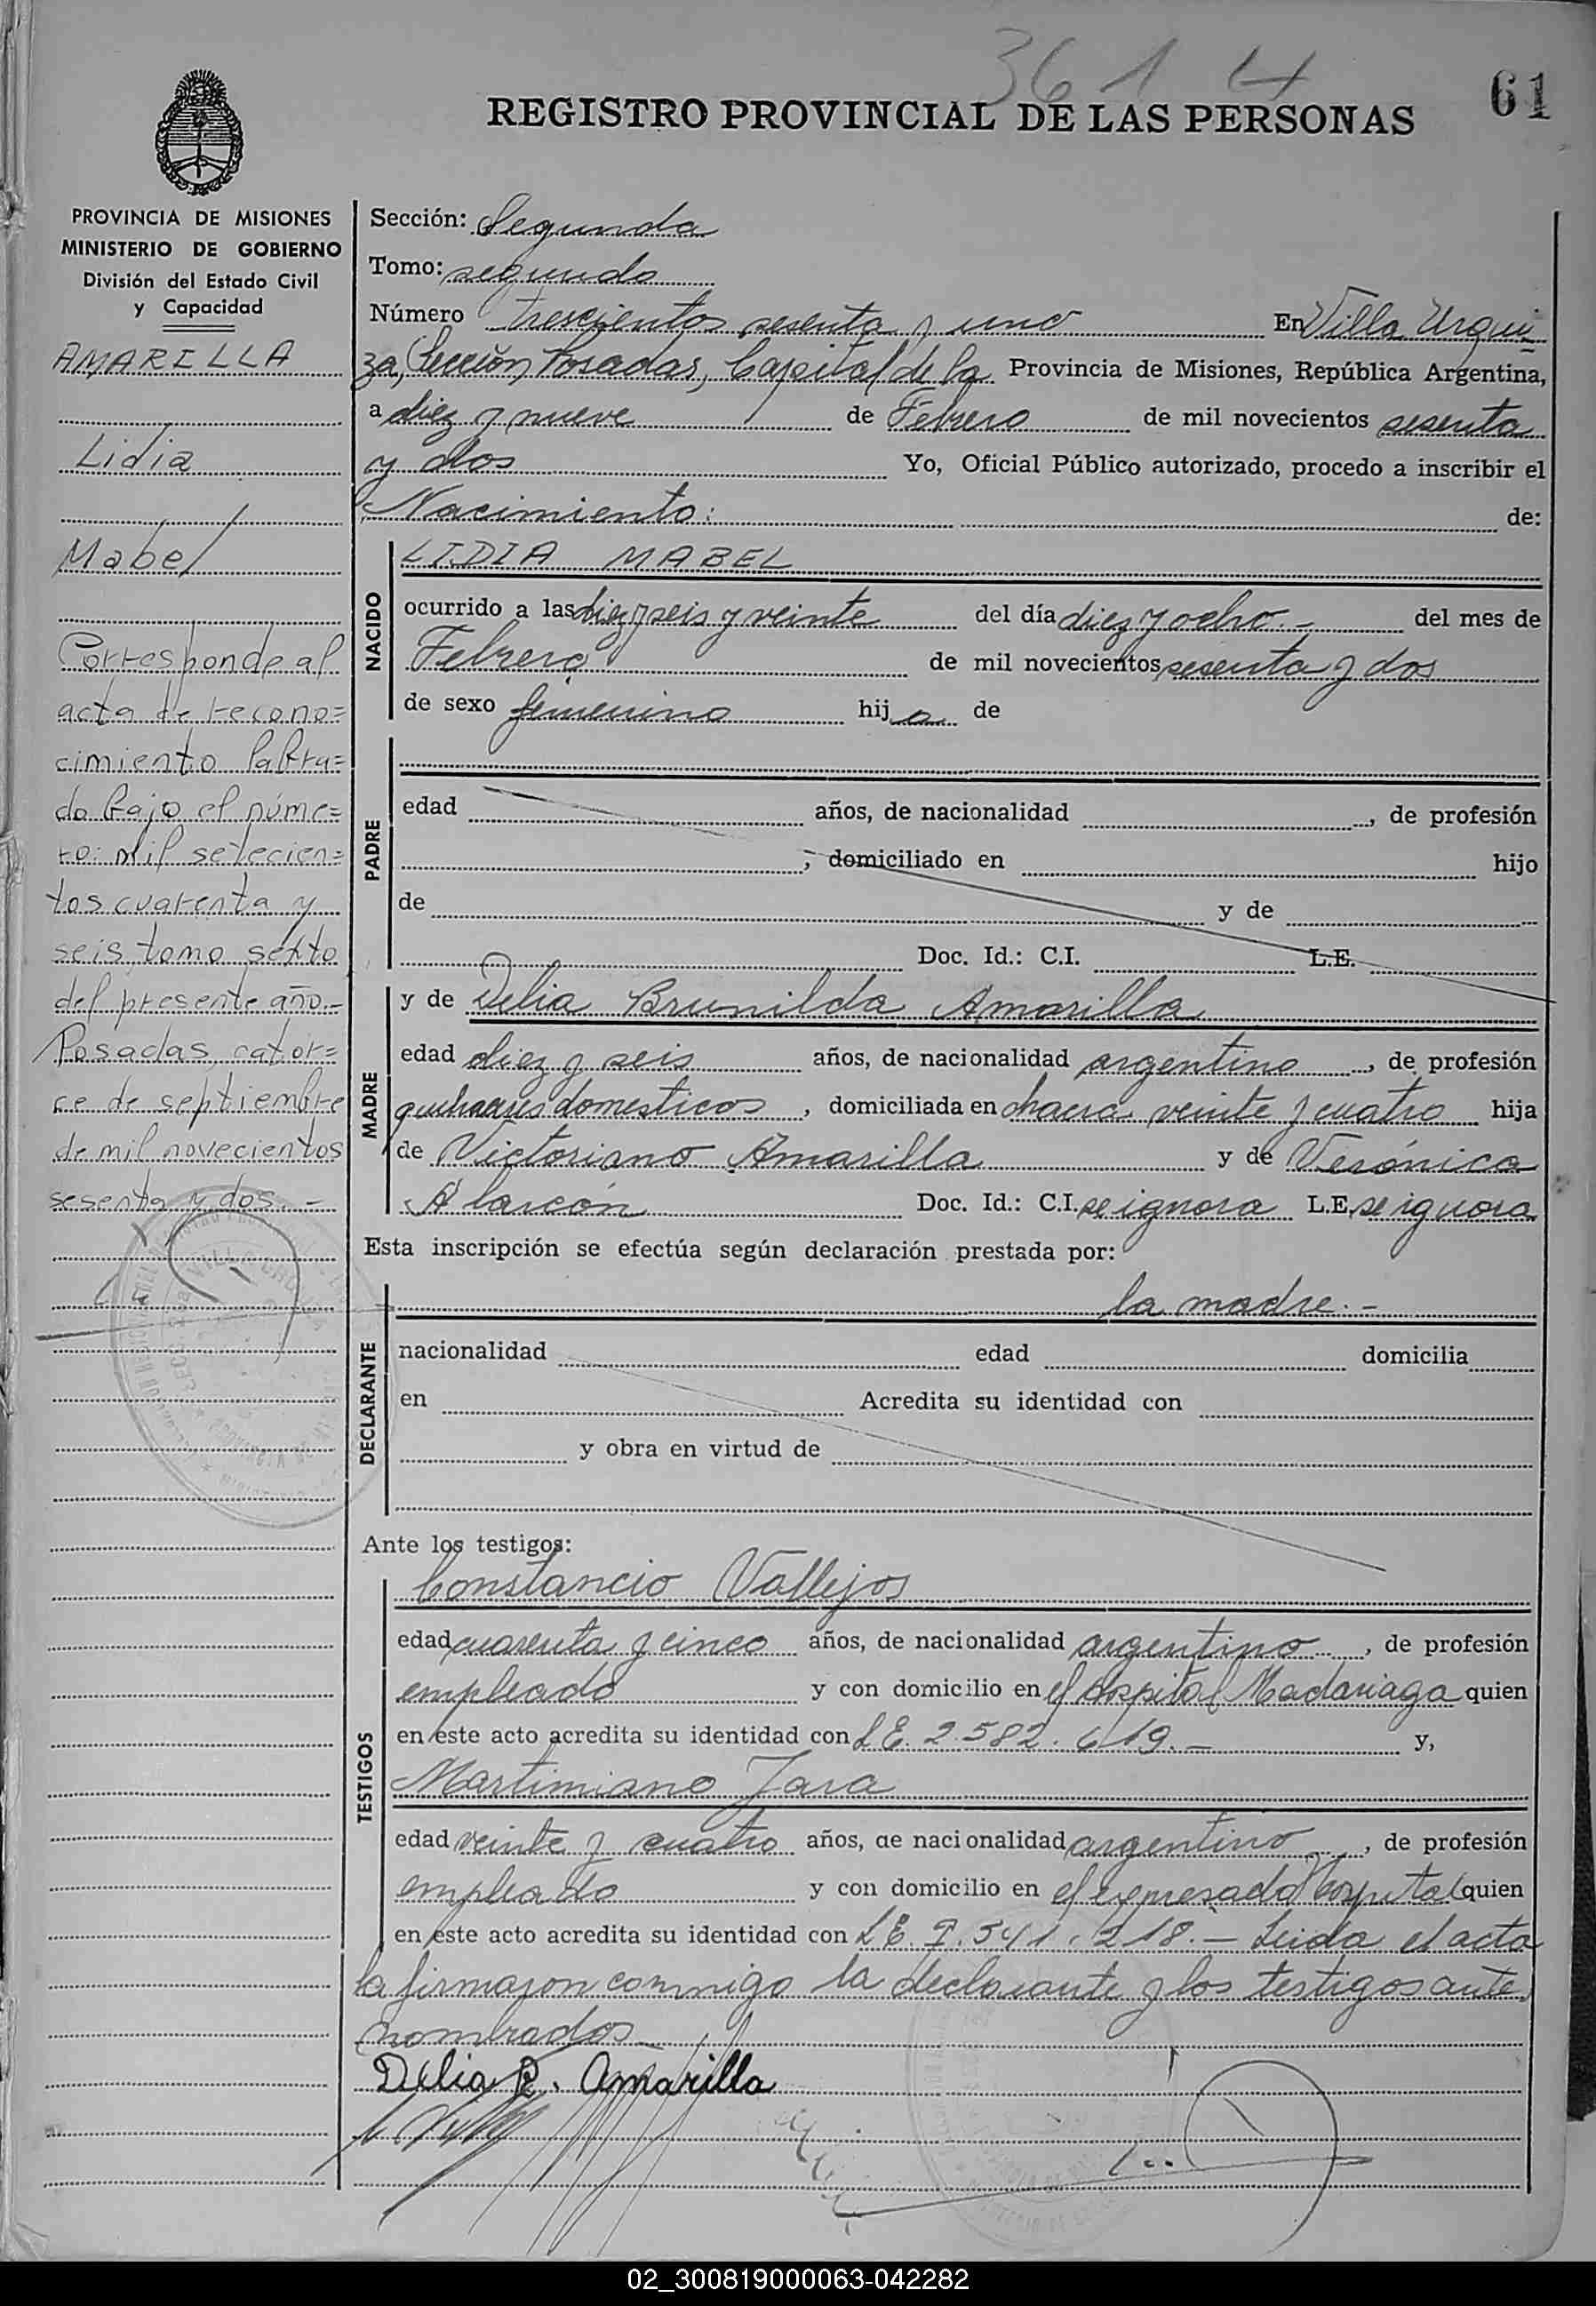 361 4
61
REGISTRO PROVINCIAL DE LAS PERSONAS
PROVINCIA DE MISIONES
MINISTERIO DE GOBIERNO
División del Estado Civil
y Capacidad
AMARILLA
Lidia
Mabel
Corresponde al
acta de recono=
cimiento labra=
do bajo el núme=
ro: mil setecien=
tos cuarenta y
seis tomo sexto
del presente año.-
Posadas, cator=
ce de septiembre
de mil novecientos
sesenta y dos.-
Sección: Segunda
Tomo: segundo
Número trescientos sesenta y uno En Villa Urqui-
za, Sección Posadas, Capital de la Provincia de Misiones, República Argentina,
a diez y nueve de Febrero de mil novecientos sesenta
y dos Yo, Oficial Público autorizado, procedo a inscribir el
Nacimiento: de:
NACIDO
LIDIA MABEL
ocurrido a las diez y seis y veinte del día diez y ocho.- del mes de
Febrero de mil novecientos sesenta y dos
de sexo femenino hija de
PADRE
edad años, de nacionalidad , de profesión
, domiciliado en hijo
de y de
Doc. Id.: C.I. L.E.
MADRE
y de Delia Brunilda Amarilla
edad diez y seis años, de nacionalidad argentino , de profesión
quehaceres domesticos , domiciliada en chacra veinte y cuatro hija
de Victoriano Amarilla y de Verónica
Alarcón Doc. Id.: C.I. se ignora L.E. se ignora
Esta inscripción se efectúa según declaración prestada por:
DECLARANTE
la madre.-
nacionalidad edad domicilia
en Acredita su identidad con
y obra en virtud de
Ante los testigos:
TESTIGOS
Constancio Vallejos
edad cuarenta y cinco años, de nacionalidad argentino , de profesión
empleado y con domicilio en el hospital Madariaga quien
en este acto acredita su identidad con L E. 2.582.619.- y,
Martimiano Jara
edad veinte y cuatro años, de nacionalidad argentino , de profesión
empleado y con domicilio en el expresado Hospital quien
en este acto acredita su identidad con L E. 7.541.218.- Leida el acta
la firmaron conmigo la declarante y los testigos ante
nombrados
Delia B. Amarilla
02_300819000063-042282